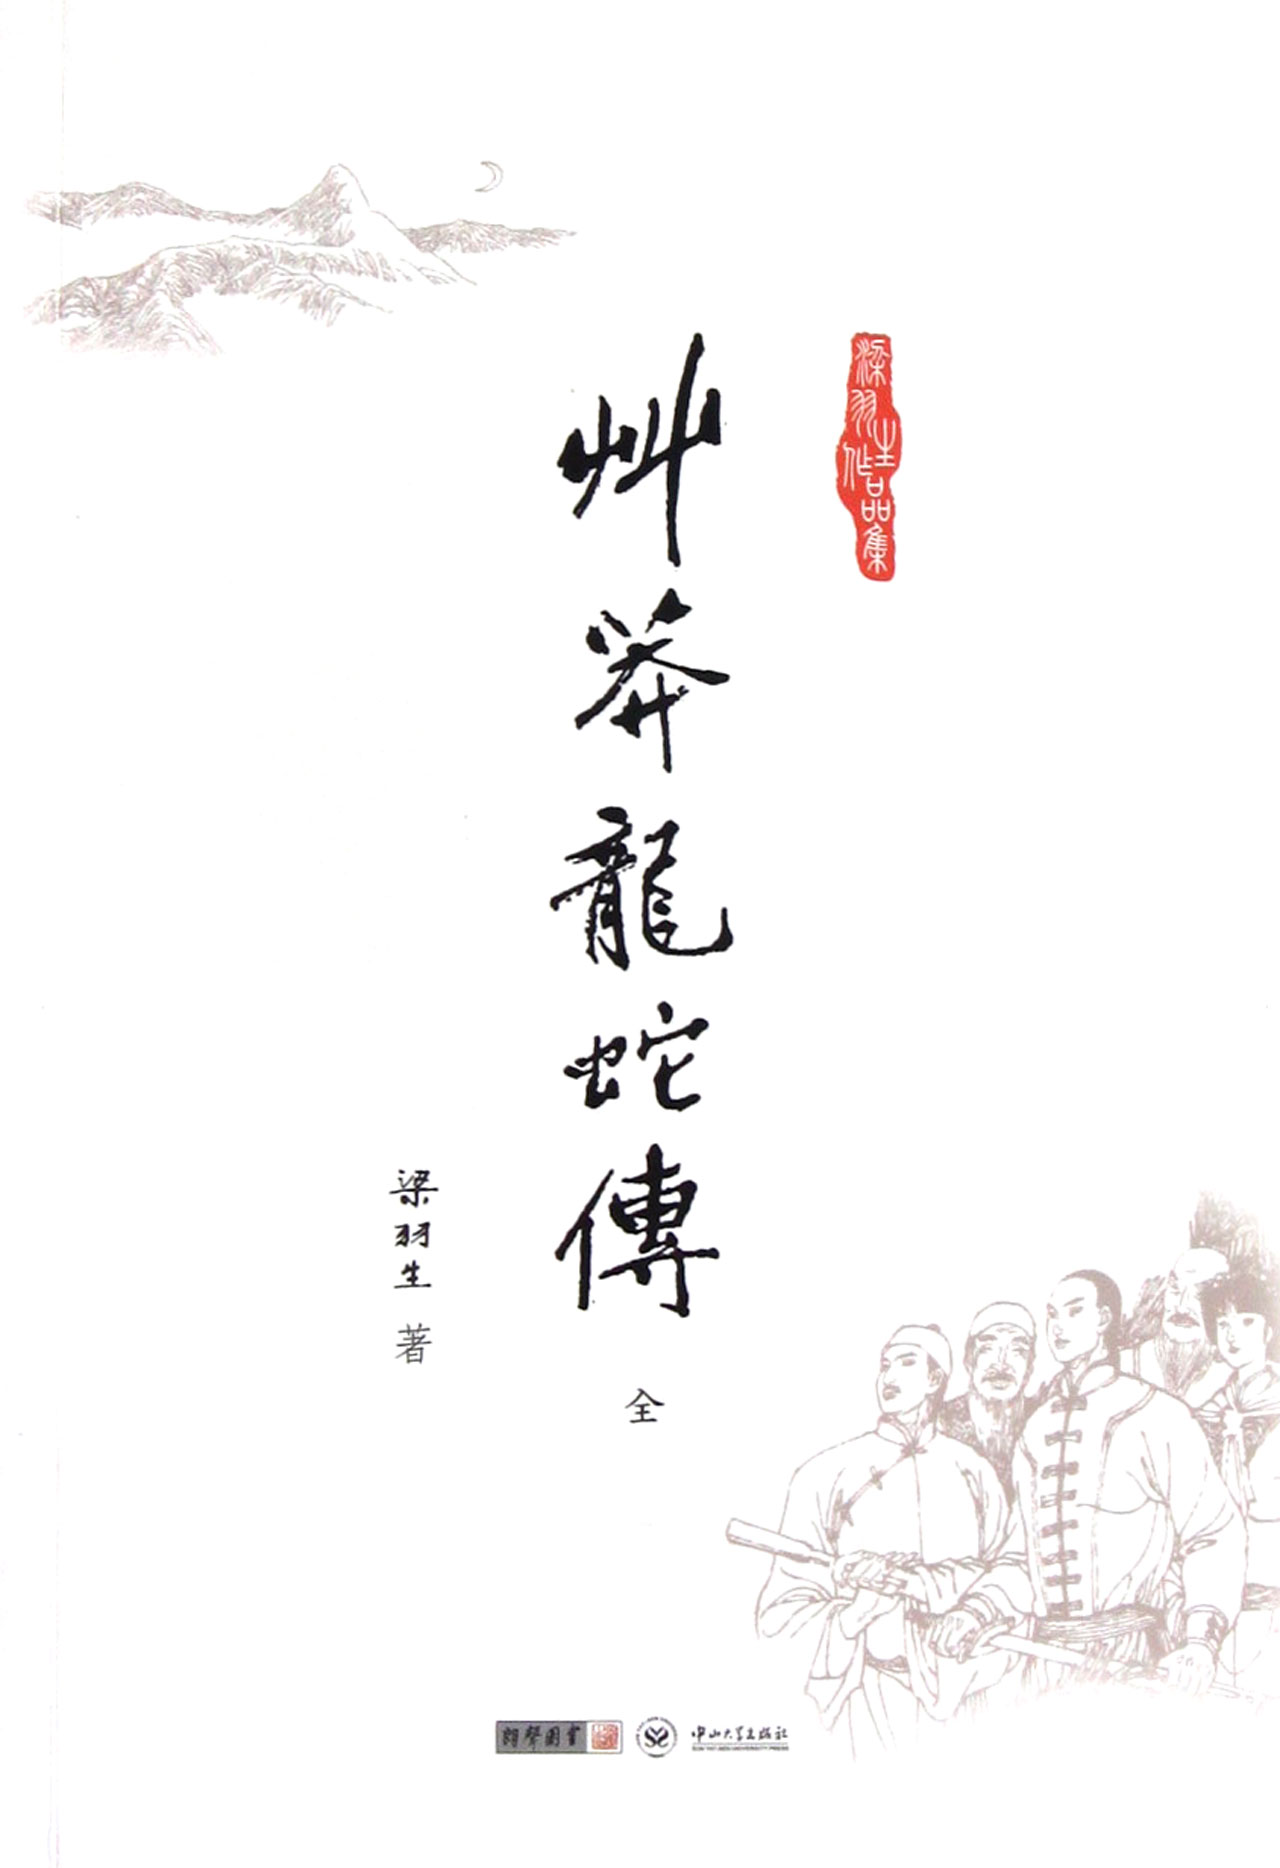 梁羽生作品集
艸莽龍蛇傳
全
梁羽生 著
朗聲圖書
中山大学出版社
SUN YAT-SEN UNIVERSITY PRESS